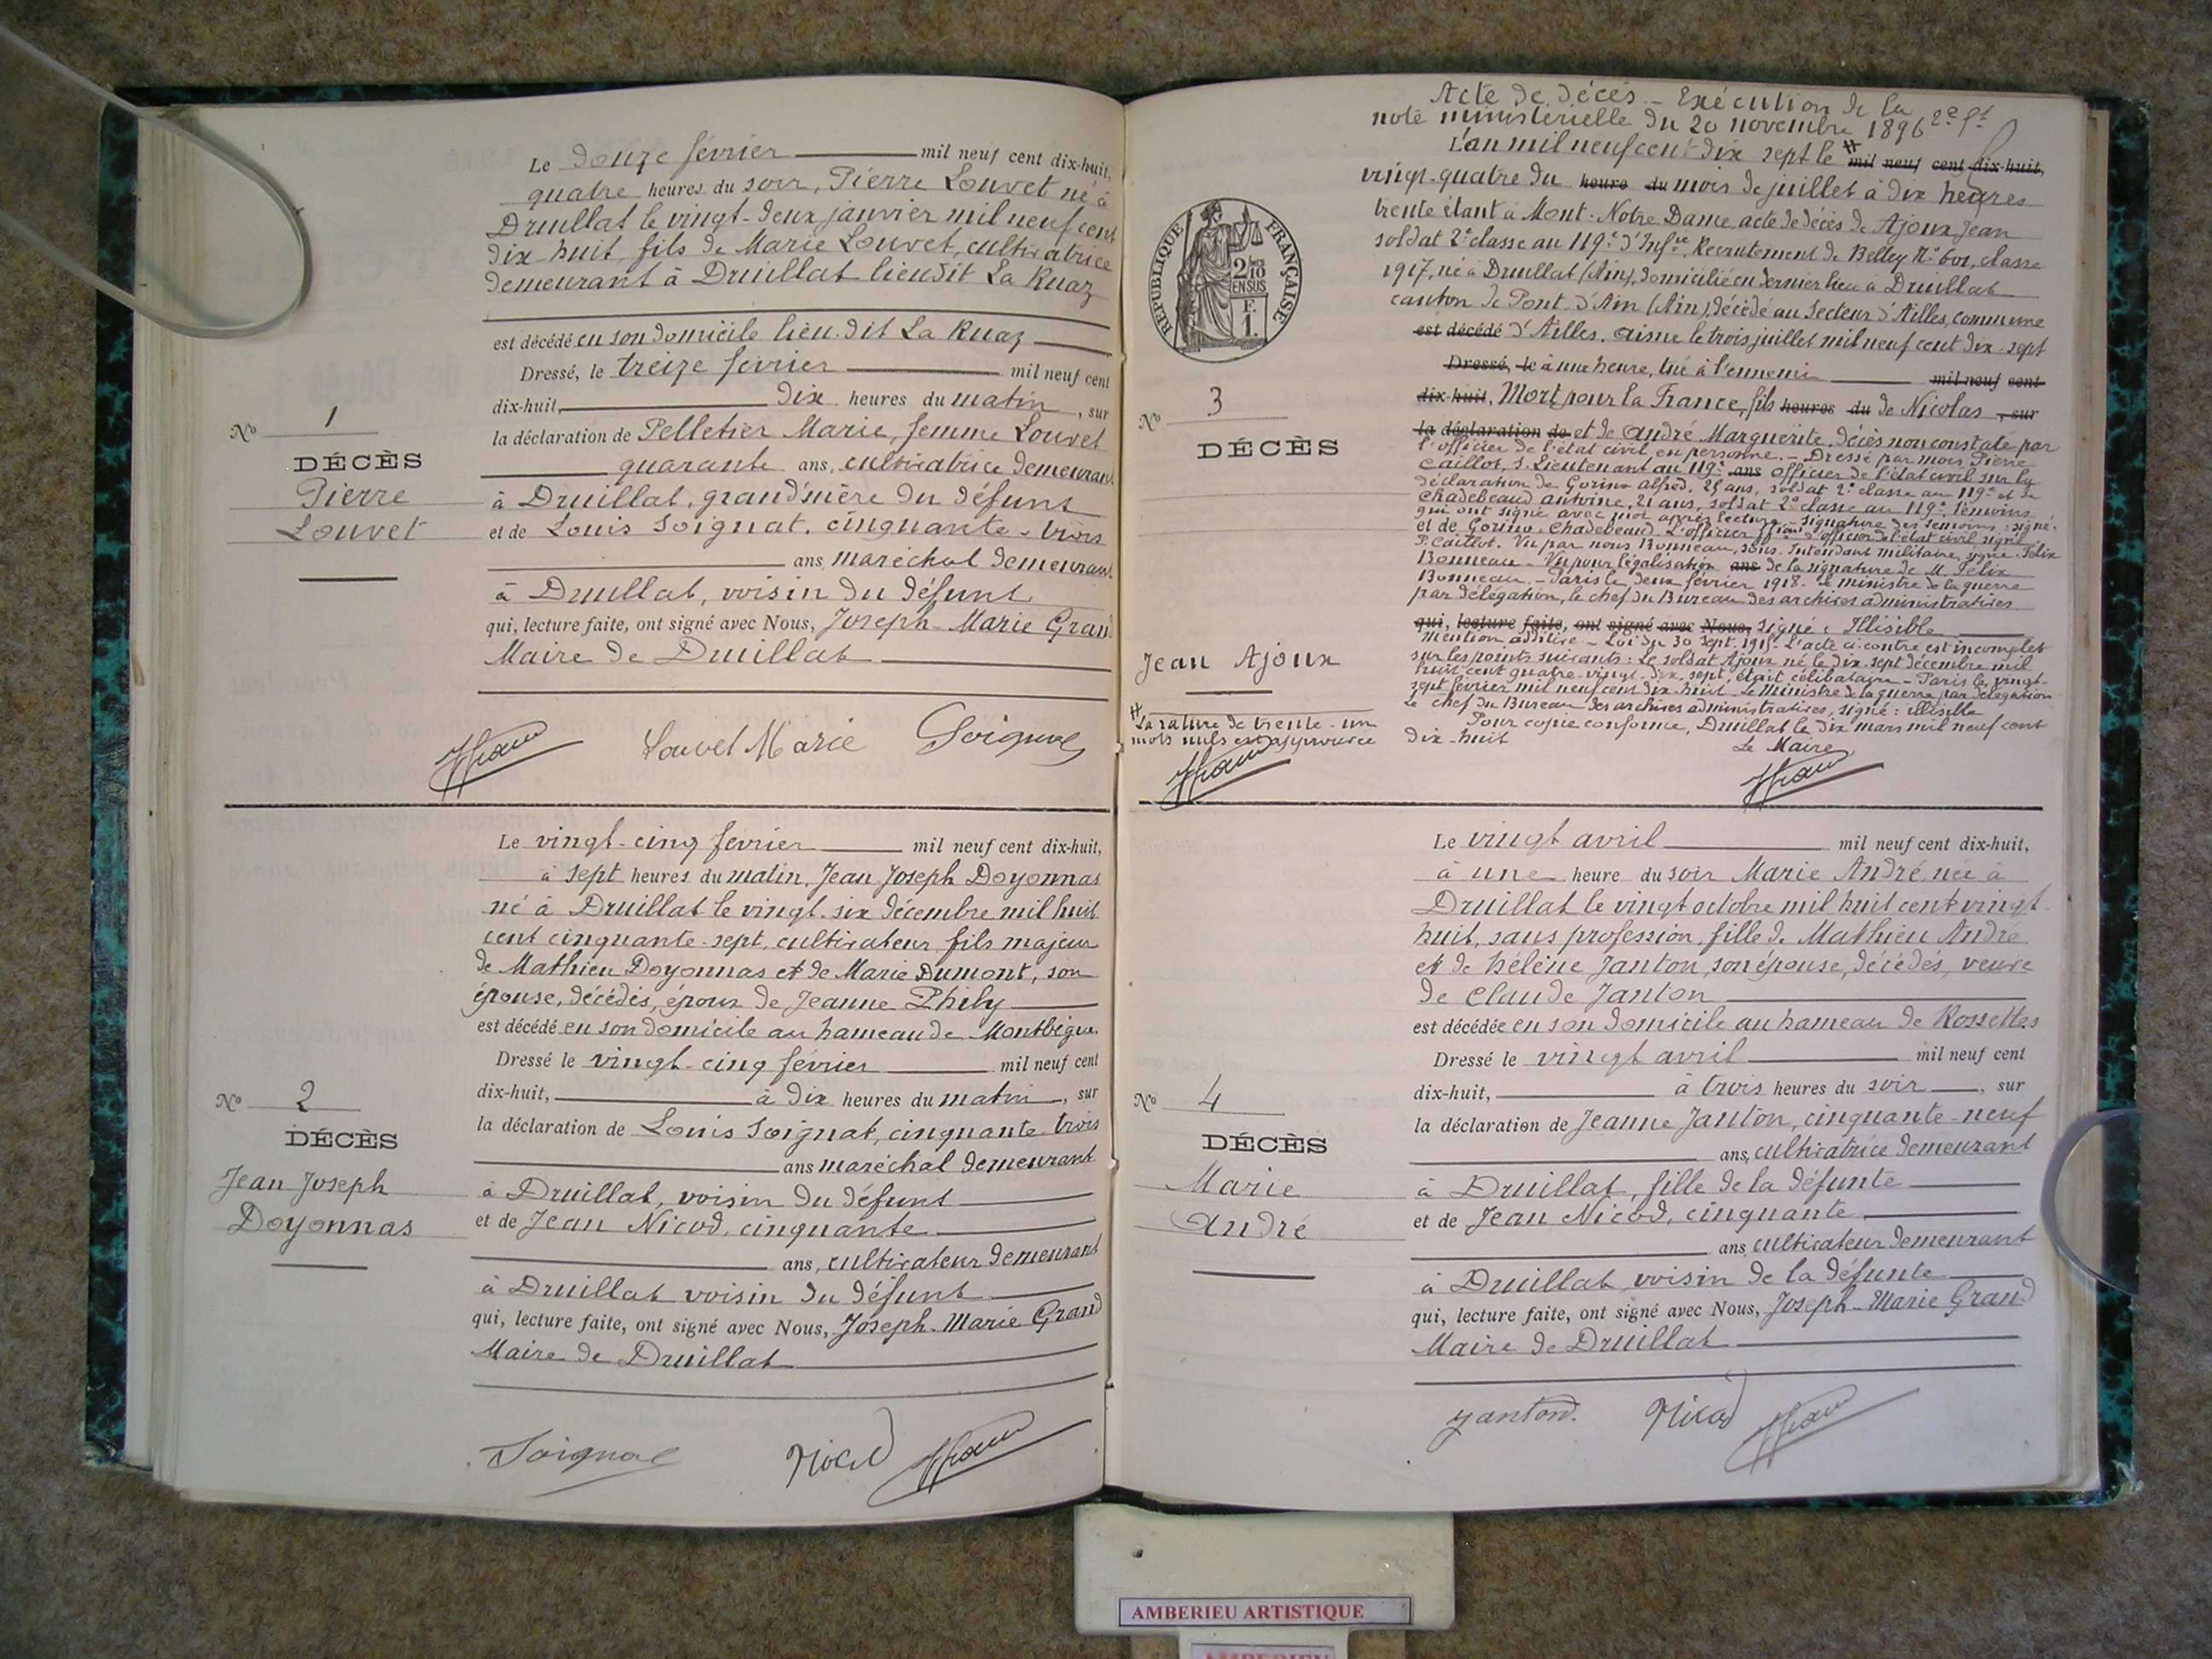 Le douze février mil neuf cent dix-huit,
quatre heures du soir, Pierre Louvet né à
Druillat le vingt-deux janvier mil neuf cent
dix-huit, fils de Marie Louvet, cultivatrice
demeurant à Druillat lieudit La Ruaz
est décédé en son domicile lieu-dit La Ruaz
Dressé, le treize février mil neuf cent
dix-huit, dix heures du matin, sur
la déclaration de Pelletier Marie, femme Louvet
quarante ans, cultivatrice demeurant
à Druillat, grand'mère du défunt
et de Louis Soignat, cinquante-trois
ans, maréchal demeurant
à Druillat, voisin du défunt
qui, lecture faite, ont signé avec Nous, Joseph-Marie Grand
Maire de Druillat
No 1
DÉCÈS
Pierre
Louvet
Louvet Marie Soignat
Le vingt-cinq février mil neuf cent dix-huit,
à sept heures du matin, Jean Joseph Doyonnas
né à Druillat le vingt-six décembre mil huit
cent cinquante-sept, cultivateur, fils majeur
de Mathieu Doyonnas et de Marie Dumont, son
épouse, décédés, époux de Jeanne Phily
est décédé en son domicile au hameau de Montbègue.
Dressé le vingt-cinq février mil neuf cent
dix-huit, à dix heures du matin, sur
la déclaration de Louis Soignat, cinquante trois
ans maréchal demeurant
à Druillat, voisin du défunt
et de Jean Nicod, cinquante
ans, cultivateur demeurant
à Druillat voisin du défunt
qui, lecture faite, ont signé avec Nous, Joseph-Marie Grand
Maire de Druillat
No 2
DÉCÈS
Jean Joseph
Doyonnas
Soignat Nicod
Acte de décès - Exécution de la
note ministérielle du 20 novembre 1896 2e
L'an mil neuf cent dix sept le # mil neuf cent dix-huit,
vingt-quatre du heure du mois de juillet à dix heures
trente étant à Mont-Notre Dame, acte de décès de Ajoux Jean
soldat 2e classe au 119e d'Infie, Recrutement de Belley No 601, classe
1917, né à Druillat (Ain), domicilié en dernier lieu à Druillat
canton de Pont-d'Ain (Ain), décédé au Secteur d'Ailles, commune
est décédé d'Ailles. Aisne le trois juillet mil neuf cent dix-sept
Dressé, le à une heure, tué à l'ennemi mil neuf cent
dix-huit, Mort pour la France, fils heures du de Nicolas, sur
la déclaration de et de André Marguerite, décès non constaté par
l'officier de l'état civil en personne. - Dressé par mois Pierre
Caillot, S. Lieutenant au 119e ans officier de l'état civil sur la
déclaration de Gorino alfred, 25 ans, soldat 2e classe au 119e et de
Chadebeaud antoine, 21 ans, soldat 2e classe au 119e, témoins
qui ont signé avec moi après lecture. - signature des témoins: signé:
et de Gorino - Chadebeaud. L'officier d'officier de l'état civil signé
P. Caillot. Vu par nous Bonneau, sous. Intendant militaire, signé: Félix
Bonneau - Vu pour légalisation ans de la signature de M. Félix
Bonneau. - Paris le deux février 1918. Le ministre de la guerre
par délégation, le chef du Bureau des archives administratives
qui, lecture faite, ont signé avec Nous, signé: Illisible
Mention additive - Loi du 30 Sept. 1915. L'acte ci-contre est incomplet
sur les points suivants: Le soldat Ajoux né le dix-sept décembre mil
huit cent quatre-vingt-dix-sept, était célibataire - Paris le vingt-
sept février mil neuf cent dix-huit - Le Ministre de la guerre, par délégation
Le chef du Bureau des archives administratives, signé: illisible
Pour copie conforme, Druillat le dix mars mil neuf cent
dix-huit
Le Maire
RÉPUBLIQUE FRANÇAISE
2/10
EN SUS
F.
1.
No 3
DÉCÈS
Jean Ajoux
# La rature de trente-un
mots nuls est approuvée
Le vingt avril mil neuf cent dix-huit,
à une heure du soir Marie André, née à
Druillat le vingt octobre mil huit cent vingt-
huit, sans profession, fille de Mathieu André
et de hélène Janton, son épouse, décédés, veuve
de Claude Janton
est décédée en son domicile au hameau de Rossettes
Dressé le vingt avril mil neuf cent
dix-huit, à trois heures du soir, sur
la déclaration de Jeanne Janton, cinquante-neuf
ans, cultivatrice demeurant
à Druillat, fille de la défunte
et de Jean Nicod, cinquante
ans, cultivateur demeurant
à Druillat voisin de la défunte
qui, lecture faite, ont signé avec Nous, Joseph-Marie Grand
Maire de Druillat
No 4
DÉCÈS
Marie
André
Janton. Nicod
AMBERIEU ARTISTIQUE
AMBERIEU